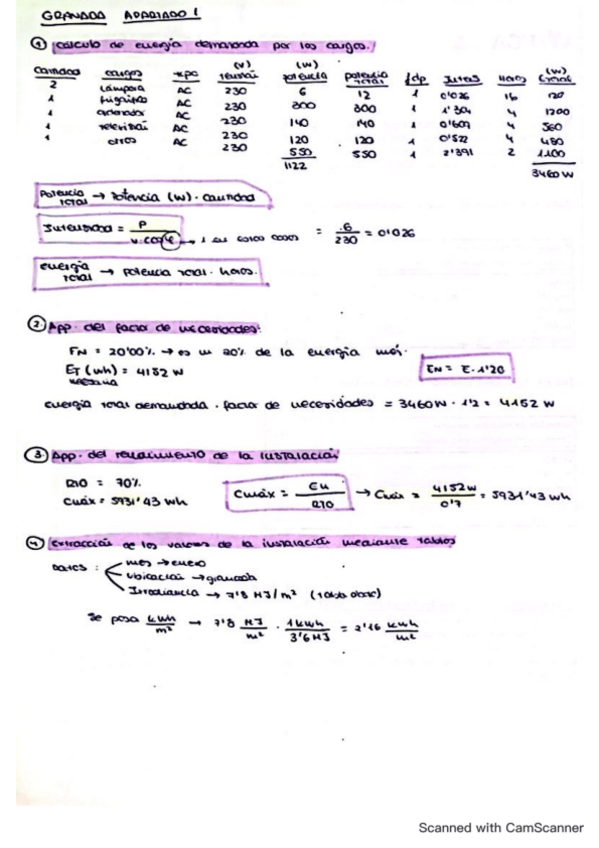 GRANADA APARTADO 1
① Cálculo de energía demandada por las cargas.
Cantidad cargas tipo (V) tensión (W) potencia potencia total fdp Intens Horas (W) Energía
2 Lámpara AC 230 6 12 1 0'026 16 120
1 frigorífico AC 230 300 300 1 1'304 4 1200
1 ordenador AC 230 140 140 1 0'609 4 560
1 televisión AC 230 120 120 1 0'522 4 480
1 otros AC 230 550 550 1 2'391 2 1100
1122 3460 W
Potencia total → Potencia (W) · cantidad
Intensidad = P / V·cos φ → 1 en estos casos = 6 / 230 = 0'026
energía total → potencia total · horas.
② App. del factor de necesidades:
FN = 20'00% → es un 20% de la energía más.
ET (Wh) = 4152 W
necesaria
EN = E · 1'20
energía total demandada · factor de necesidades = 3460W · 1'2 = 4152 W
③ App. del rendimiento de la instalación
RTO = 70%
Cmáx = 5931'43 Wh
Cmáx = EN / RTO → Cmáx = 4152W / 0'7 = 5931'43 Wh
④ extracción de los valores de la instalación mediante tablas
Datos:
mes → enero
Ubicación → granada
Irradiancia → 7'8 MJ/m²
Se pasa kWh/m² → 7'8 MJ/m² · 1 kWh / 3'6 MJ = 2'16 kWh/m²
Scanned with CamScanner